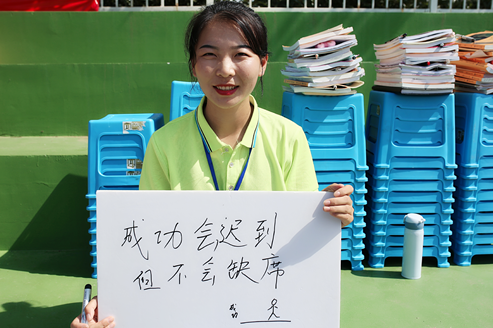 成功会迟到
但不会缺席